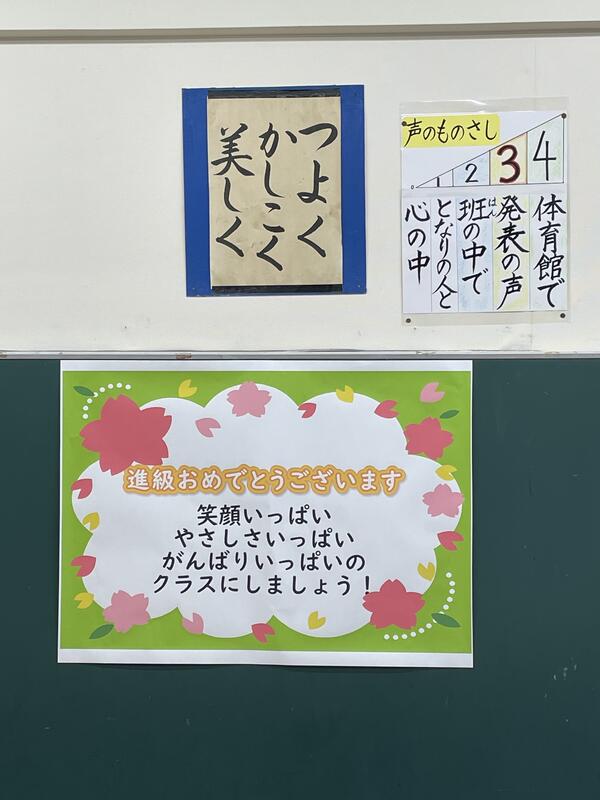 つよく
かしこく
美しく
声のものさし
0 1 2 3 4
体育館で
発表の声
班の中で
はん
となりの人と
心の中
進級おめでとうございます
笑顔いっぱい
やさしさいっぱい
がんばりいっぱいの
クラスにしましょう！